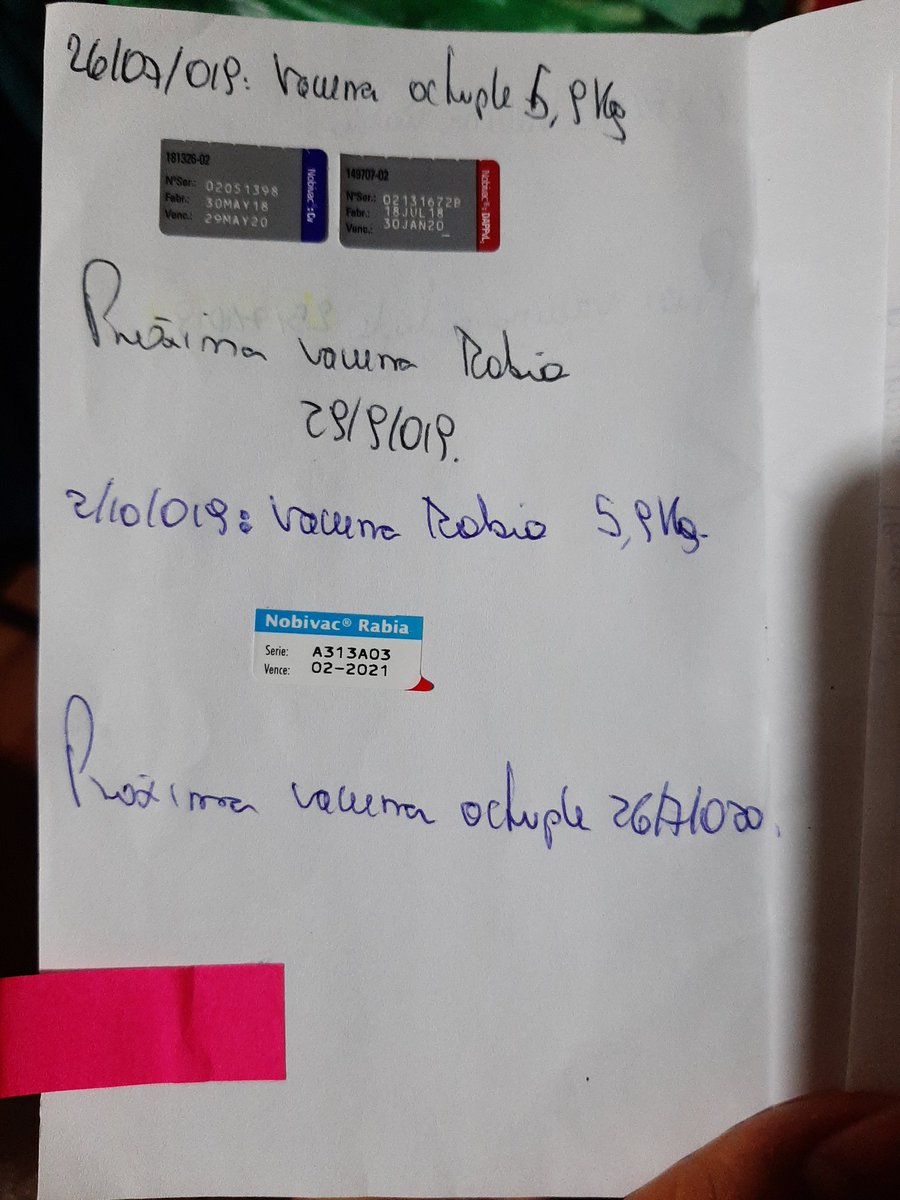 26/07/019: Vacuna octuple 5,9Kg
181326-02
NºSer.: 02051398
Fabr.: 30MAY18
Venc.: 29MAY20
Nobivac®: Cv
149707-02
NºSer.: 02131672B
Fabr.: 18JUL18
Venc.: 30JAN20
Nobivac®: DAPPvL
Próxima vacuna Rabia
29/9/019.
2/10/019: Vacuna Rabia 5,9Kg.
Nobivac® Rabia
Serie: A313A03
Vence: 02-2021
Próxima vacuna octuple 26/7/020.